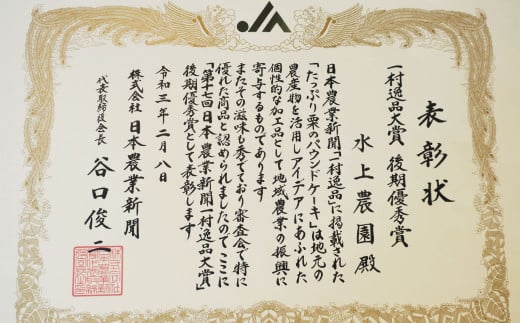 表彰状
一村逸品大賞 後期優秀賞
水上農園殿
日本農業新聞「一村逸品」に掲載された
「たっぷり栗のパウンドケーキ」は地元の
農産物を活用しアイデアにあふれた
個性的な加工品として地域農業の振興に
寄与するものであります
またその滋味も秀でており審査会で特に
優れた商品と認められましたのでここに
「第十七回日本農業新聞一村逸品大賞」
後期優秀賞として表彰します
令和三年二月八日
株式会社 日本農業新聞
代表取締役会長 谷口俊二